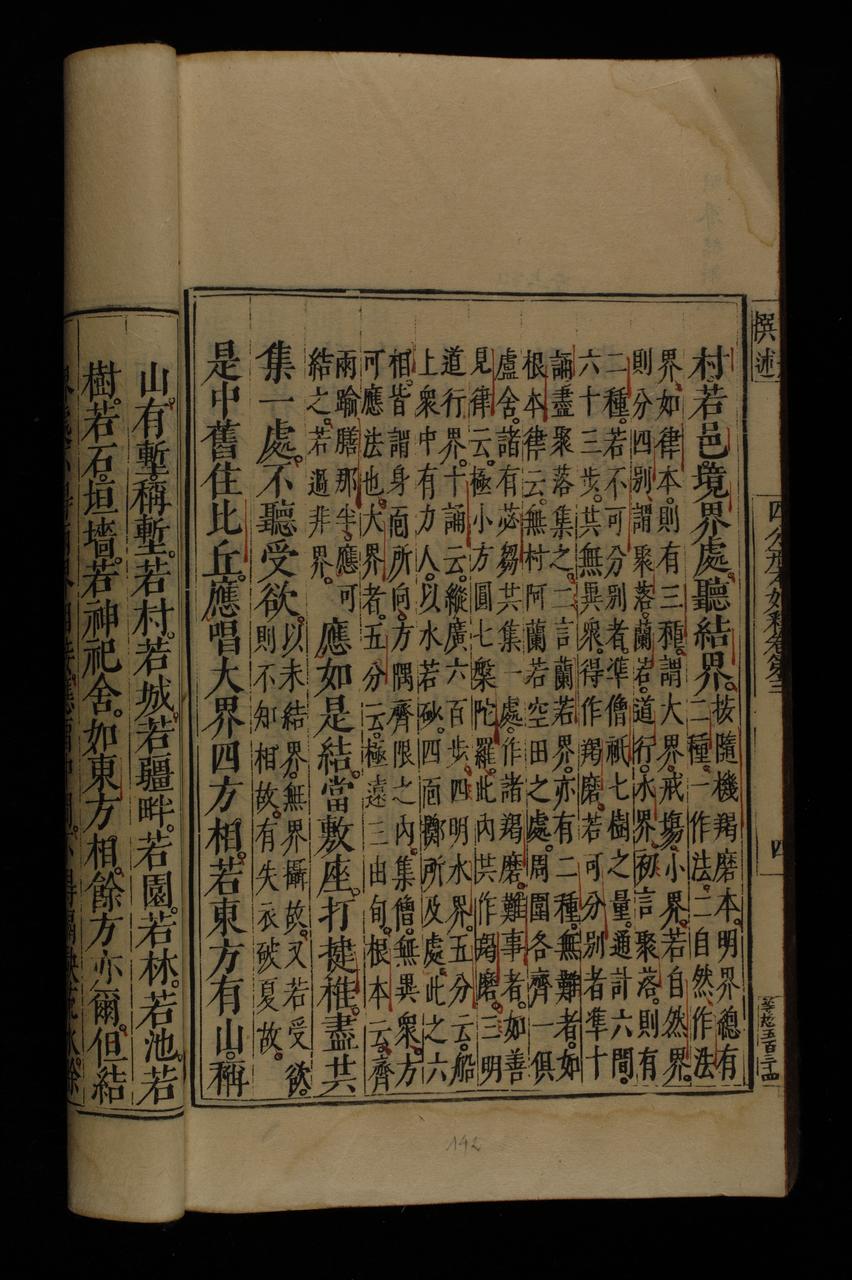 撰述
四分戒本如釋卷第三
四
村。若邑。境界處。聽結界。
按隨機羯磨本。明界總有
二種。一作法。二自然。作法
界。如律本。則有三種。謂大界。戒場。小界。若自然界。
則分四別。謂聚落。蘭若。道行。水界。初言聚落。則有
二種。若不可分別者。準僧祇七樹之量。通計六間。
六十三步。共無異衆。得作羯磨。若可分別者準十
誦。盡聚落集之。二言蘭若界。亦有二種。無難者。如
根本律云。無村阿蘭若空田之處。周圍各齊一俱
盧舍。諸有苾芻共集一處。作諸羯磨。難事者。如善
見律云。極小方圓七槃陀羅。此內共作羯磨。三明
道行界。十誦云。縱廣六百步。四明水界。五分云。船
上衆中有力人。以水若砂。四面擲所及處。此之六
相。皆謂身面所向。方隅齊限之內。集僧。無異衆。方
可應法也。大界者。五分云。極遠三由旬。根本云。齊
兩踰膳那半。應可
結之。若過非界。
應如是結。當敷座。打揵椎。盡共
集一處。不聽受欲。
以未結界。無界攝故。又若受欲。
則不知相故。有失衣破夏故。
是中舊住比丘。應唱大界四方相。若東方有山。稱
山。有塹。稱塹。若村。若城。若疆畔。若園。若林。若池。若
樹。若石。垣墻。若神祀舍。如東方相。餘方亦爾。但結
142